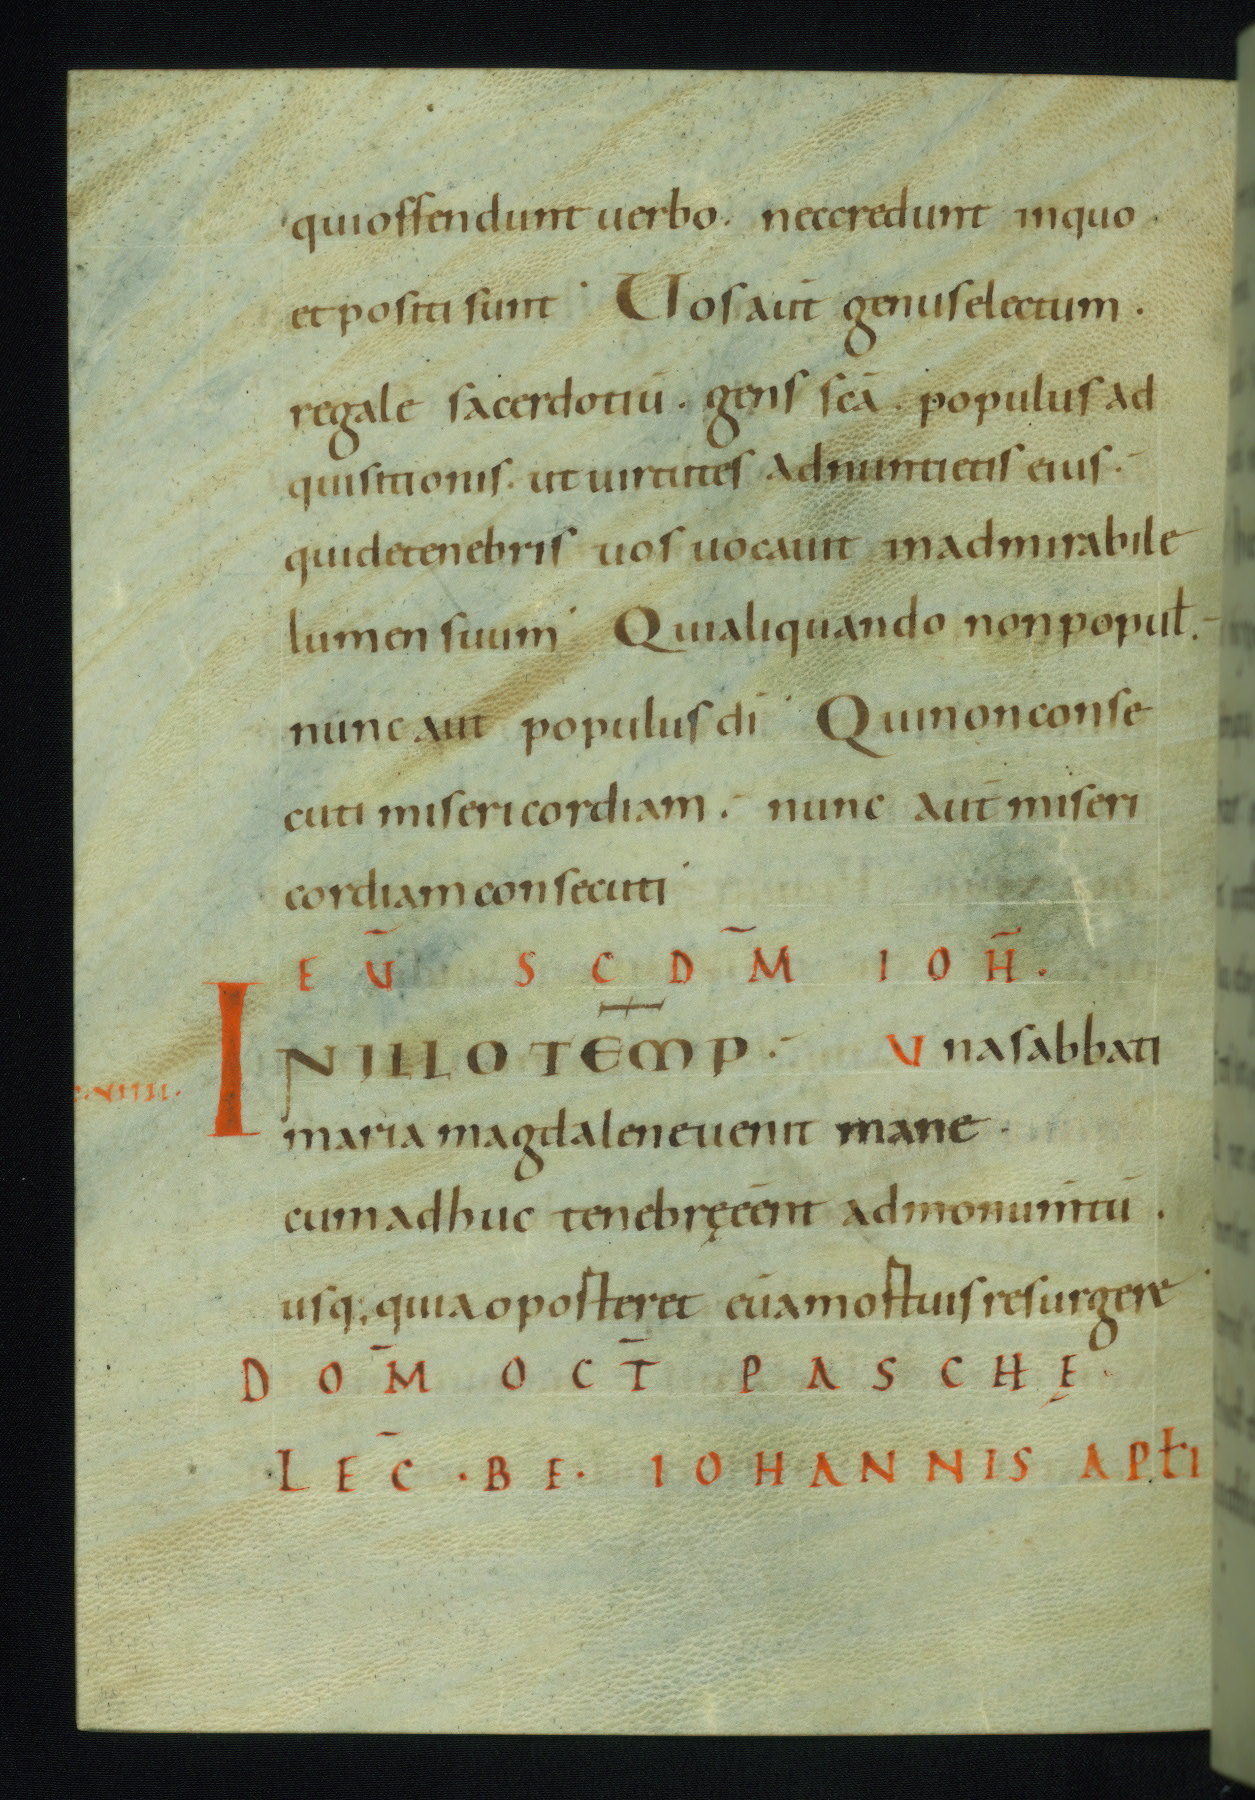 qui offendunt uerbo. nec credunt in quo.
et positi sunt. Uos aut̄ genus electum.
regale sacerdotiū. gens sc̄a. populus ad
quisitionis. ut uirtutes adnuntietis eius.
qui de tenebris uos uocauit in admirabile
lumen suum. Qui aliquando non popul̄.
nunc aut populus dī. Qui non conse
cuti misericordiam. nunc aut̄ miseri
cordiam consecuti
EṼ SCDM̄ IOH̄.
IN ILLO TEMP̄. Una sabbati
maria magdalene uenit mane.
cum adhuc tenebrę eēnt ad monum̄tū.
usq; quia oposteret eū a mostuis resurgere
DOM̄ OCT̄ PASCHĘ.
LEC̄. BE. IOHANNIS APƚI